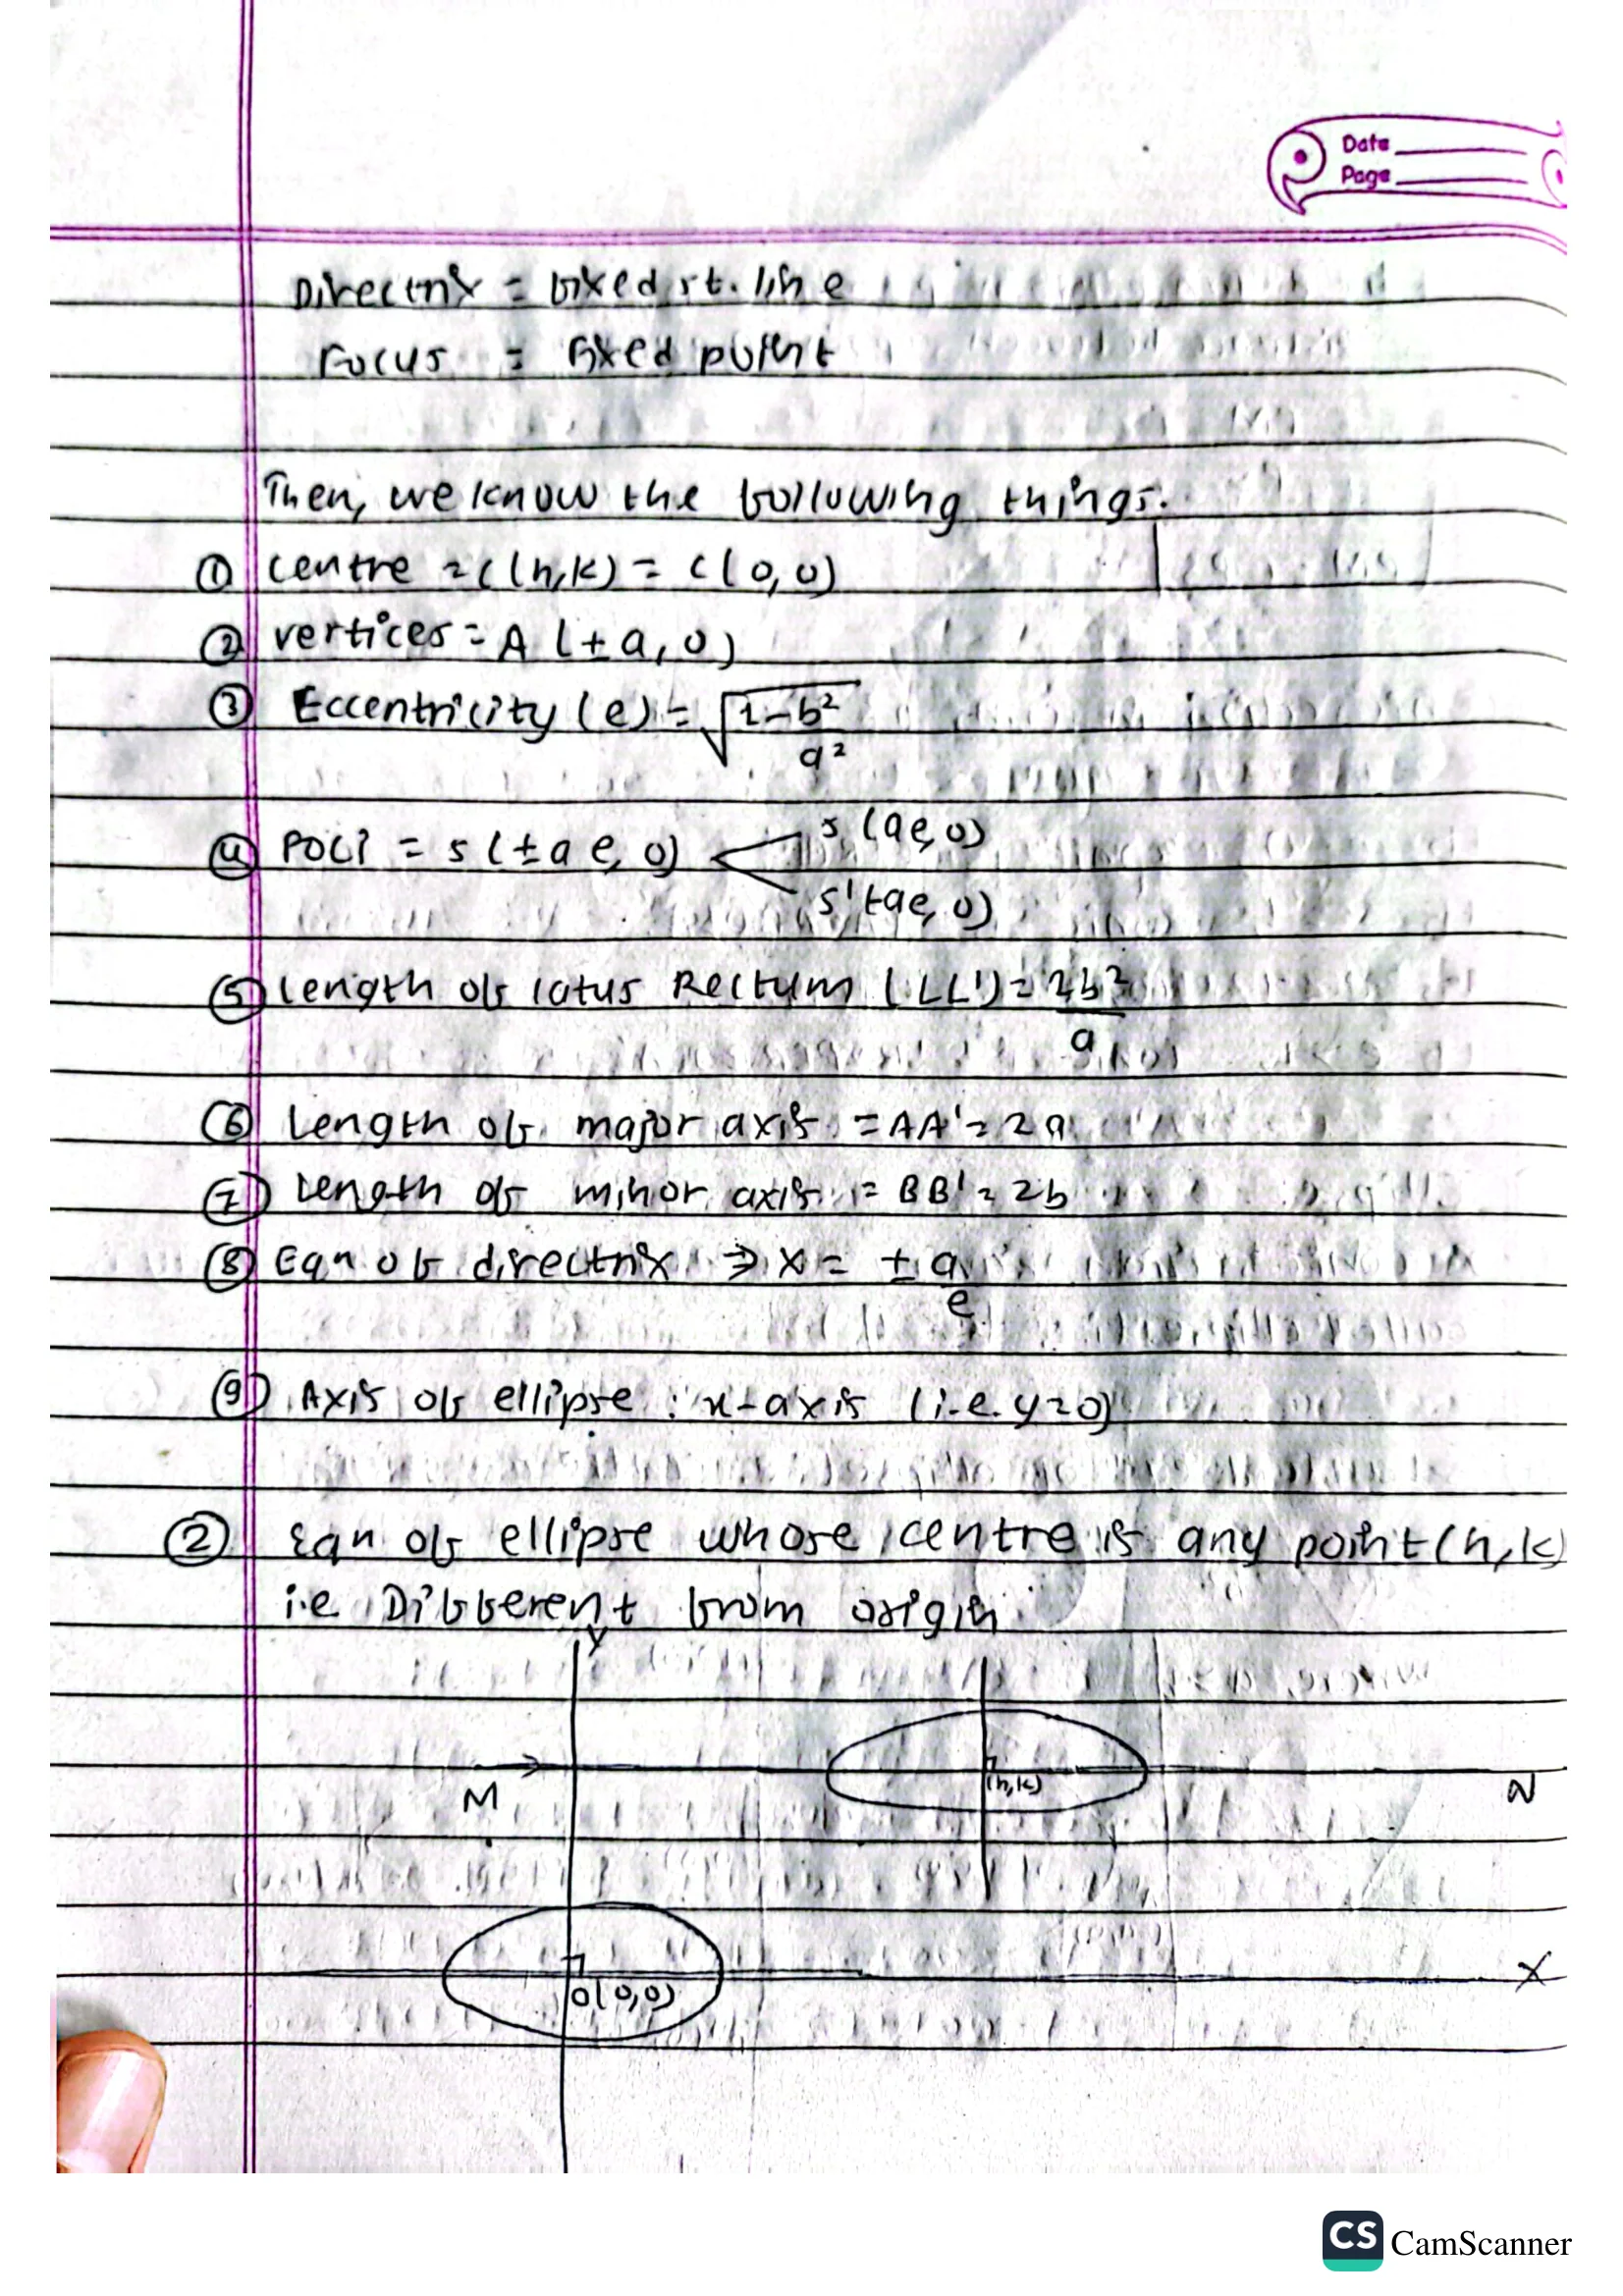 Date
Page
Directrix = fixed st. line
Focus = fixed point
Then, we know the following things.
① Centre = C(h,k) = C(0,0)
② vertices = A (±a, 0)
③ Eccentricity (e) = √(1-b²/a²)
④ Foci = S (±ae, 0) < S (ae, 0)
S' (-ae, 0)
⑤ Length of latus Rectum (LL') = 2b²/a
⑥ Length of major axis = AA' = 2a
⑦ Length of minor axis = BB' = 2b
⑧ Eqn of directrix ⇒ x = ± a/e
⑨ Axis of ellipse : x-axis (i.e. y=0)
② Eqn of ellipse whose centre is any point (h,k)
i.e Different from origin
Y
(h,k)
M
N
O(0,0)
X
CS CamScanner